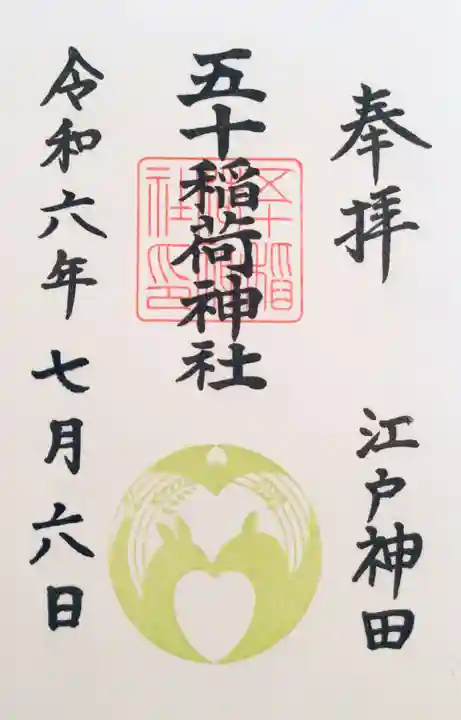 奉拝
江戸神田
五十稲荷神社
五十稲荷神社印
令和六年七月六日